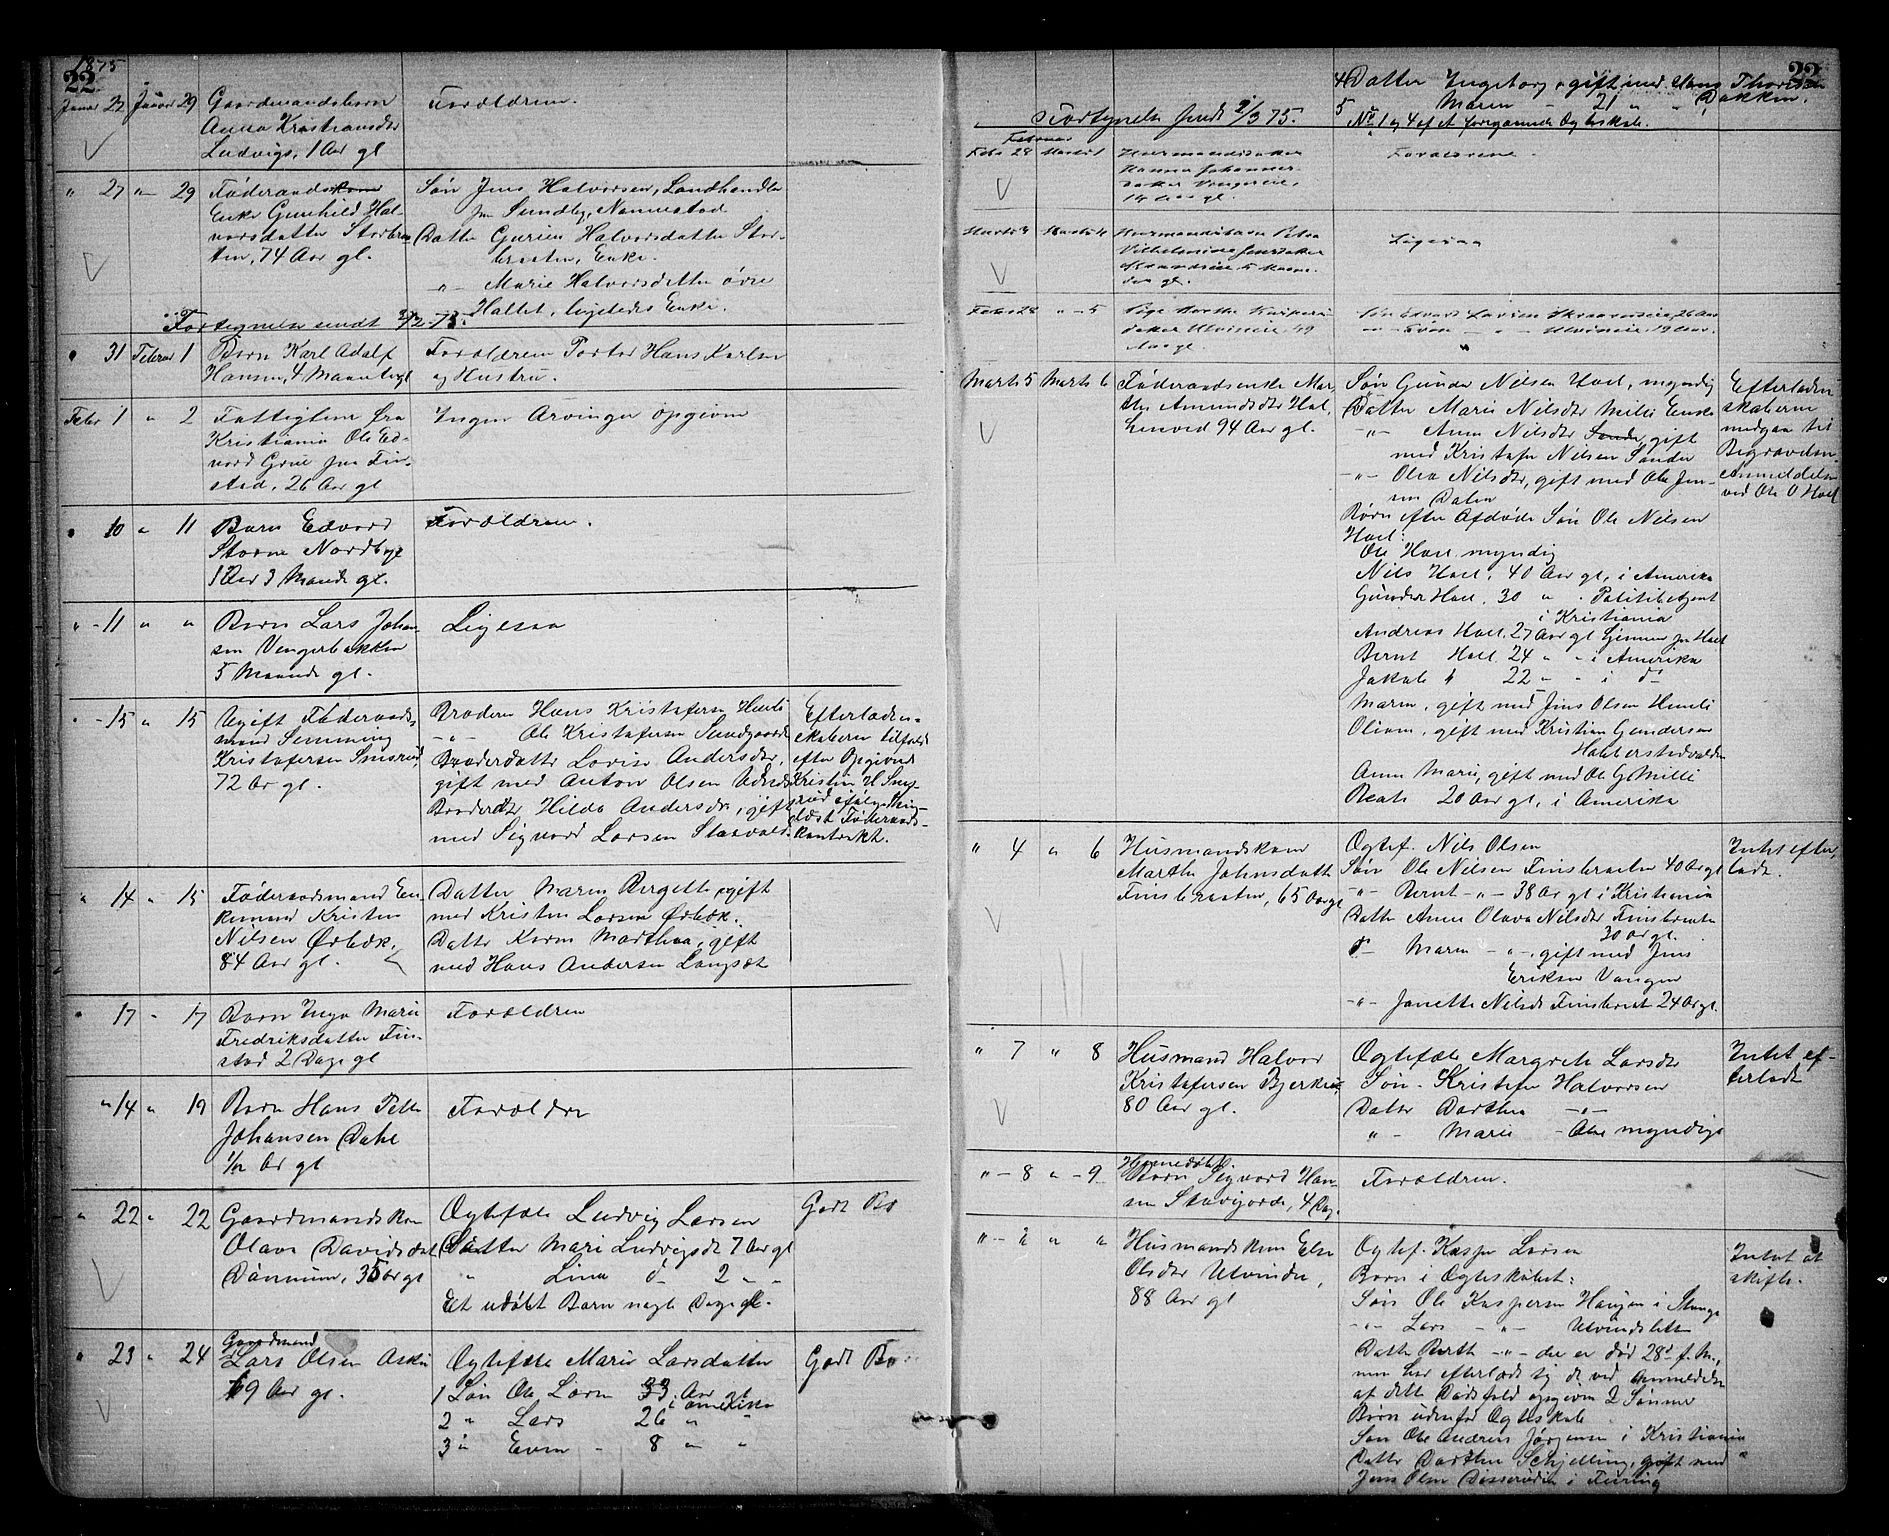 1875
22
Januar 22 Januar 29 Gaardmandsbarn
Anna Kristiansdtr
Ludvigs, 1 Aar gl
Foroldrene.
" 27 " 29 Føderaads
Enke Gunhild Hal-
vorsdatter Storbraa-
ten, 74 Aar gl.
Søn Jens Halvorsen, Landhandler
paa Sundby, Nannestad
Datter Gurine Halvorsdatter Stor-
braaten, Enke.
" - Marie Halvorsdatter øvre
Hallet, ligeledes Enke.
Fortegnelse sendt 2/2 75.
" 31 Februar 1 Barn Karl Adolf
Hansen, 4 Maaneder gl
Foroldrene Portør Hans Karlsen
og Hustru.
Febr 1 " 2 Fattiglem fra
Kristiania Ole Ed-
vard Grue paa Fin-
stad, 26 Aar gl
Ingen Arvinger opgivne
" 10 " 11 Barn Edvard
Storne Nordbye
1 Aar 3 Maand gl.
Foroldrene.
" - 11 " " Barn Lars Johan-
sen Vengerbakken
5 Maand gl.
Ligesaa
" - 15 " 15 Ugift Føderaads-
mand Semming
Kristofersen Smsrud,
72 Ar gl.
Broderen Hans Kristofersen Henli
- " - Ole Kristofersen Sundgaard
Broderdatter Lovise Andersdtr,
gift med Anton Olsen
Broderdtr Hilda Andersdr, gift
med Sigvard Larsen
Efterladen-
skaberne tilfaldt
efter Opgivende
Kristian H
ifølge thing-
læst Føderaads-
kontrakt.
" 14 " 15 Føderaadsmand En-
kemand Kristen
Nilsen Ørbæk,
84 Aar gl.
Datter Maren Bergette, gift
med Kristen Larsen Ørbæk.
Datter Karen Marthea, gift
med Hans Andersen Langset
" 17 - 17 Barn Inga Marie
Fredriksdatter Fin-
stad 2 Dage gl
Foroldrene
" 14 " 19 Barn Hans Peter
Johansen Dahl
1/12 Ar gl
Foroldre
" 22 " 22 Gaardmandskone
Olava Davidsdat
Dønnum, 35 Ar gl
Ogtefæle Ludvig Larsen
Datter Mari Ludvigsdt 7 Aar gl
" Lina d- 2 " "
Et udøbt Barn nogle Dage gl.
Godt Bo
" 23 " 24 Gaardmand
Lars Olsen Aski
69 Aar gl.
Ogtefæle Marie Larsdatter
1 Søn Ole Larsen 33 Aar gl
i Amerika
2 " Lars 26 " "
3 " Even - 8 " "
Godt Bo
22
4 Datter Ingeborg, gift med Hans Thoresen
Bakken.
5 Maren - 21 " "
No 1 og 4 af et foregaaende Ogteskab.
Fortegnelse sendt 2/3 75.
Februar
Febr 28 Marts 1 Husmandsdatter
Hanna Johannes-
datter Vengereie,
14 Aar gl.
Foroldrene.
Marts 3 Marts 4 Husmandsbarn Petra
Vilhelmine
5 Maane-
der gl.
Ligesaa
Febr 28 " - 5 Pige Berthe Kaspers-
datter Utvineie 49
Aar gl.
Søn Edvard Larsen 26 Aar
- " - Even - " - Utvineie 19 Aar.
Marts 5 Marts 6 Føderaadsenke Mar-
the Amundsdtr Hol,
Lensved 94 Aar gl.
Søn Gunder Nilsen Hoel, myndig
Datter Marie Nilsdtr Milli Enke
- " - Anne Nilsdtr Sande, gift
med Kristofer Nilsen Sander
- " - Olea Nilsdtr, gift med Ole Jen-
sen Dalen
Børn efter Afdøde Søn Ole Nilsen
Hoel:
Ole Hoel myndig
Nils Hoel, 40 Aar gl, i Amerika
Gunder Hoel, 30 " " Politibetjent
i Kristiania
Andreas Hoel, 27 Aar gl hjemme paa Hoel
Bernt Hoel 24 " " i Amerika
Jakob " 22 " " i d-
Maren, gift med Jens Olsen Henli
Oliane, gift med Kristian Gundersen
Habberstadvolden
Anne Marie, gift med Ole G Milli
Beate 20 Aar gl, i Amerika
Efterladen-
skaberne
medgaa til
Begravelsen
Anmeldelsen
ved Ole O Hoel
" 4 " 6 Husmandskone
Marthe Johnsdatter
Finsbraaten, 65 Aar gl
Ogtef. Nils Olsen
Søn Ole Nilsen Finsbraaten 40 Ar gl
- " - Bernt - " - 38 Ar gl i Kristiania
Datter Anne Olava Nilsdtr Finsbraaten
30 Ar gl.
d- Maren - " -, gift med Jens
Eriksen Vangen
- " - Janette Nilsd Finsbraat 24 Ar gl.
Intet efter-
ladt.
" 7 " 8 Husmand Halvor
Kristofersen Bjerkeie,
80 Aar gl.
Ogtefæle Margrete Larsdtr
Søn - Kristofer Halvorsen
Datter Dorthea - " -
" - Marie - Alle myndige
Intet ef-
terladt
" - 8 " - 9 Hjemmedøbt
Barn Sigvard Han-
sen Stavijorde, 4 Dag.
Foroldrene.
" - 2 " " Husmandskone Else
Olsdtr Utvindeie,
88 Aar gl
Ogtef. Kasper Larsen
Børn i Ogteskabet:
Søn Ole Kaspersen Haugen i Stange
- " - Lars - " - Utvindslette
Datter Berth - " - der er død 28d f. M.,
men har efterladt sig de ved Anmeldelse
af dette Dødsfald opgivne 2 Sønner
Børn udenfor Ogteskab
Søn Ole Andreas Jørgensen i Kristiania
Datter Dorthea Schjelling, gift med
Jens Olsen i Feiring
Intet at
skifte.